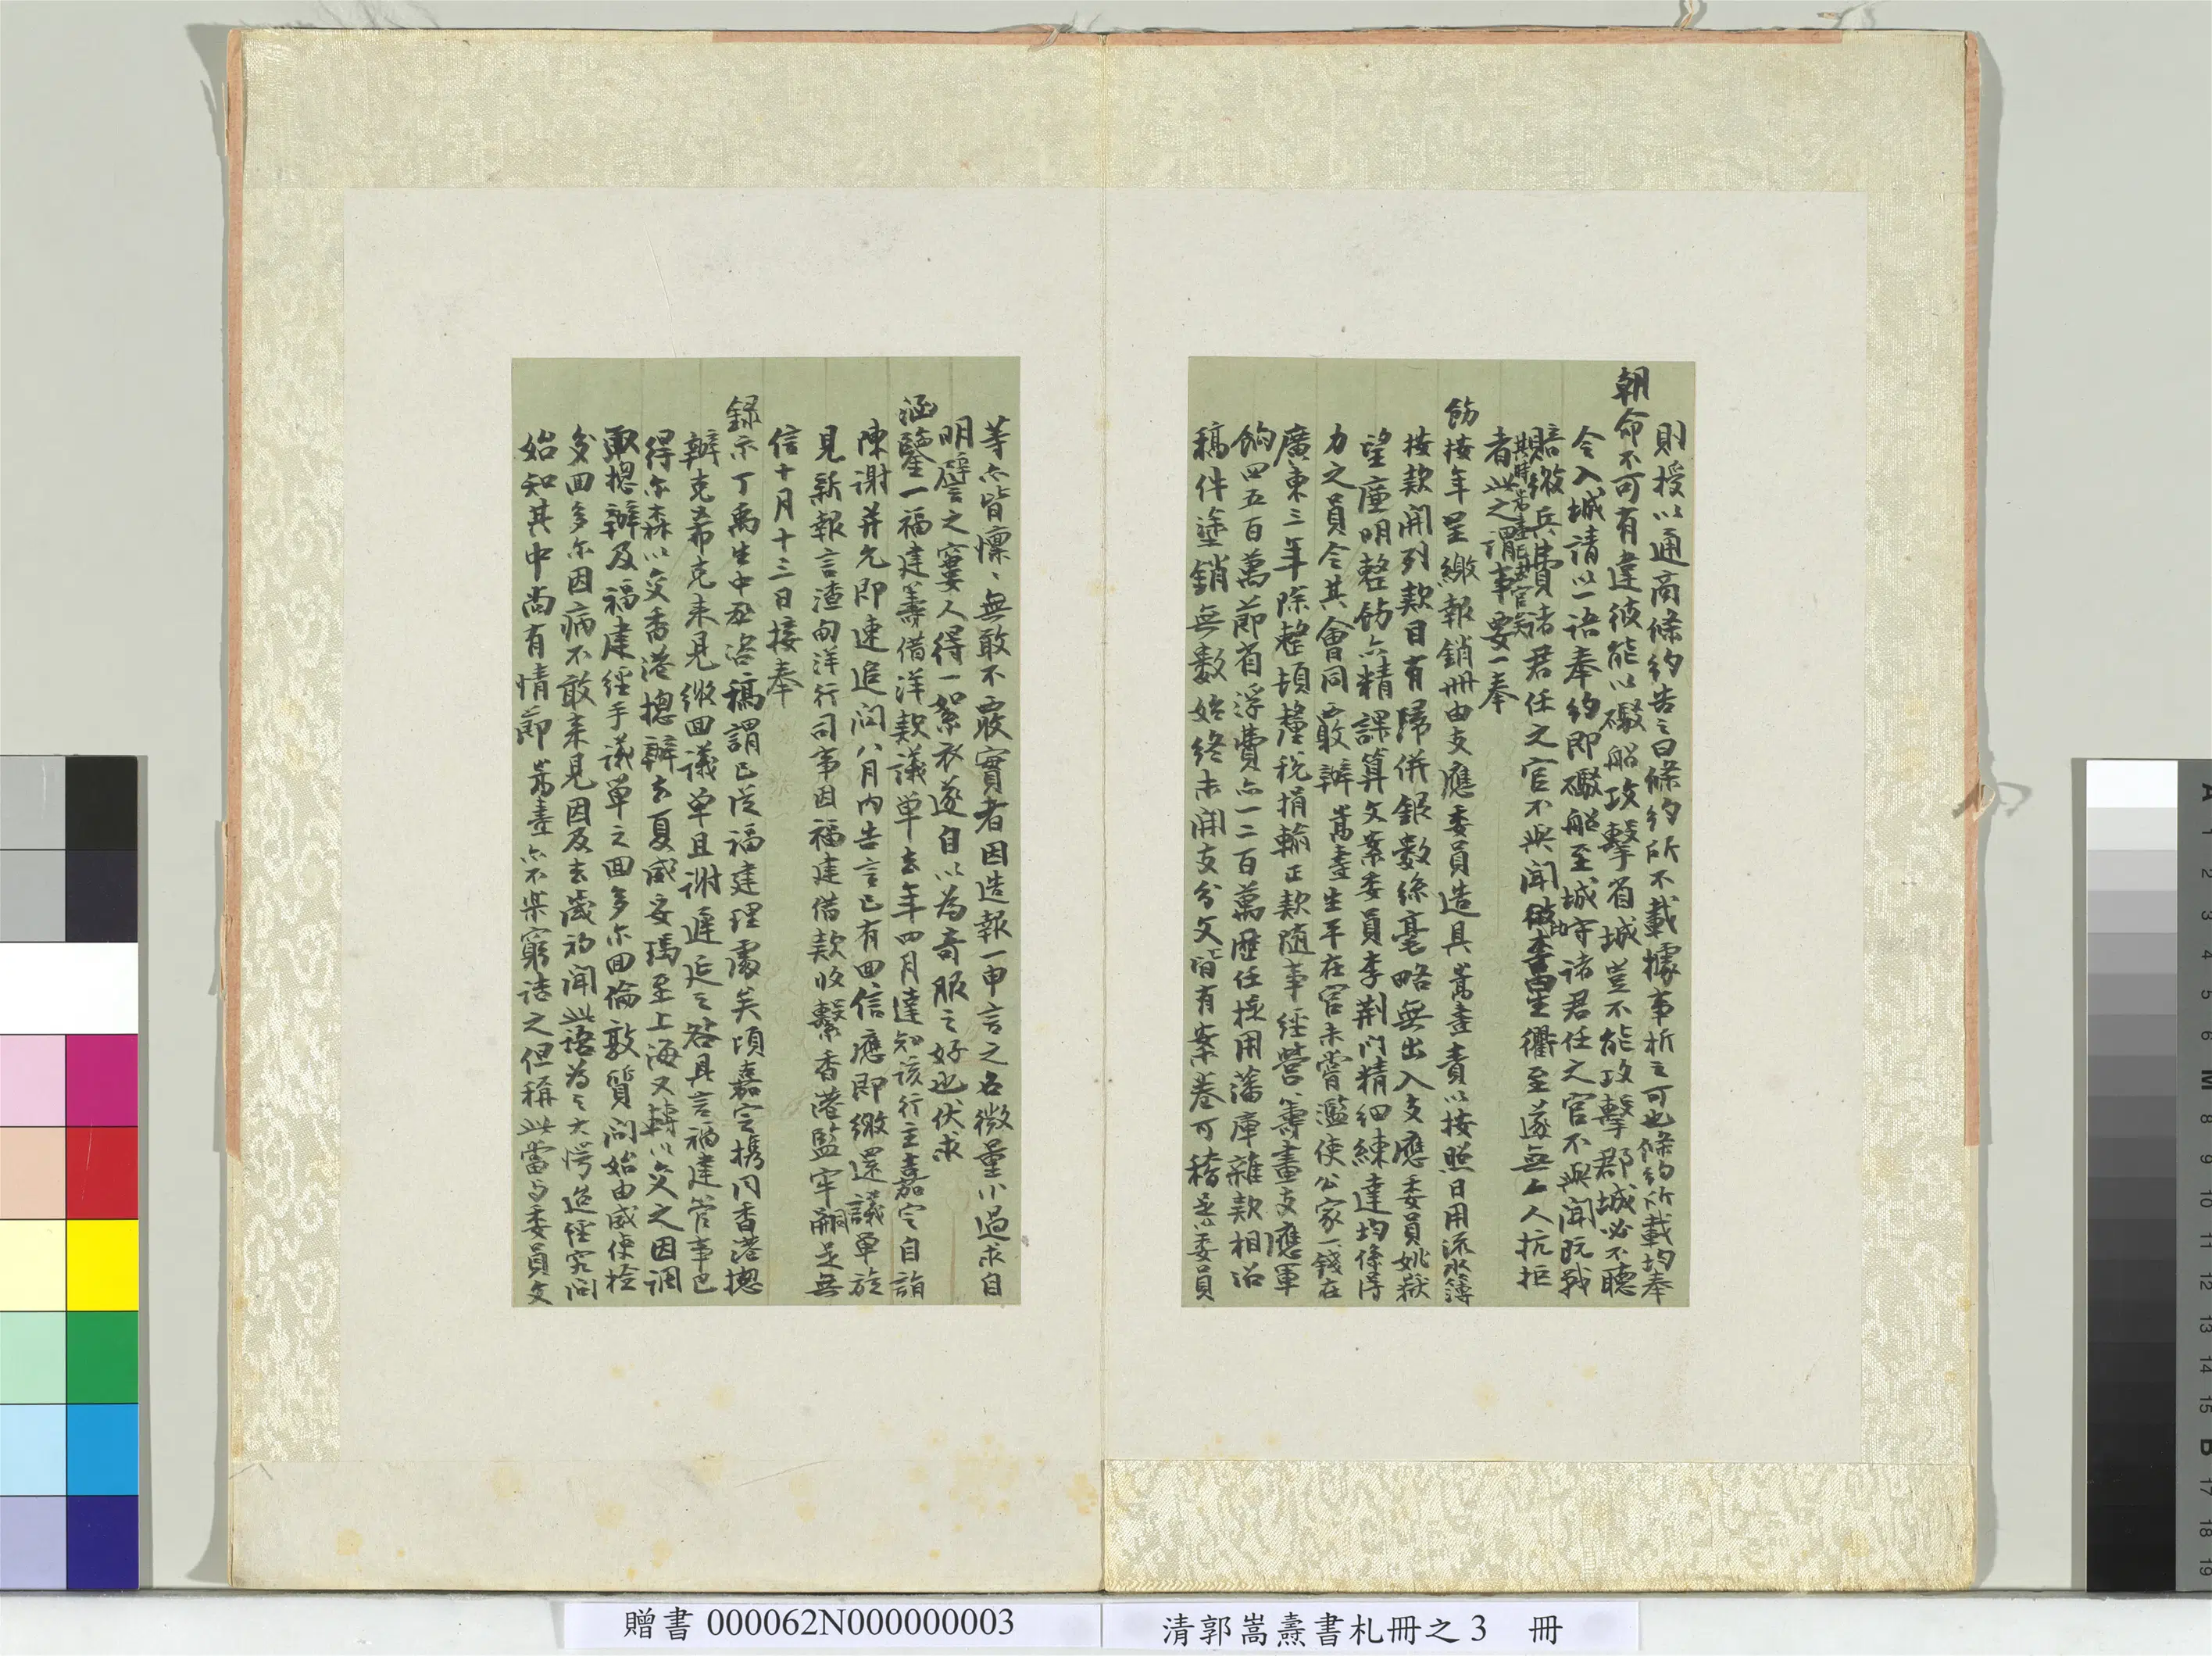 則授以通商條約告之曰條約所不載據事析之可也條約所載均奉
朝命不可有違彼能以礮船攻擊省城豈不能攻擊郡城必不聽
令入城請以一語奉約即礮船至城守諸君任之官不與聞既戰
賠繳兵費諸君任之官不與聞 至遂無一人抗拒
者此之謂事要一奉
飭按年呈繳報銷冊由支應委員造具嵩燾責以按照日用流水簿
按款開列款目有歸併銀數絲毫略無出入支應委員姚嶽
望廉明整飭亦精課算文案委員李荊門精細練達均係得
力之員令其會同覈辦嵩燾生平在官未嘗濫使公家一錢在
廣東三年除整頓釐稅捐輸正款隨事經營籌畫支應軍
餉四五百萬節省浮費亦一二百萬歷任提用藩庫雜款相沿
稿件塗銷無數始終未開支分文皆有案卷可稽是以委員
等亦皆懍懍無敢不覈實者因造報一申言之名微量小過求自
明譬之窶人得一絮衣遂自以為奇服之好也伏求
涵鑒一福建籌借洋款議單去年四月達知該行主嘉定自詣
陳謝并允即速追問八月內告言已有回信應即繳還議單旋
見新報言渣甸洋行司事因福建借款收繫香港監牢嗣是無
信十月十三日接奉
錄示丁禹生中丞咨稿謂已從福建理處矣頃嘉定攜同香港總
辦克希克來見繳回議單且謝遲延之咎具言福建管事巴
得尔森以交香港總辦去夏威妥瑪至上海又轉以交之因調
取總辦及福建經手議單之回多尔回倫敦質問始由威使檢
交回多尔因病不敢來見因及去歲初聞此語為之大愕迨徑究問
始知其中尚有情節嵩燾亦不樂窮詰之但稱此當與委員文
贈書 000062N000000003
清郭嵩燾書札冊之3 冊